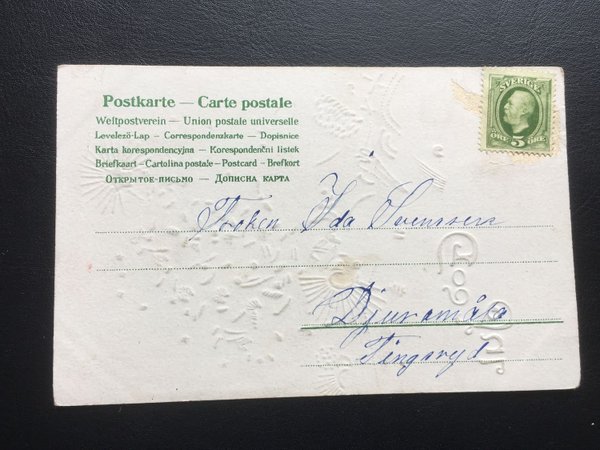 Postkarte — Carte postale
Weltpostverein — Union postale universelle
Levelező-Lap — Correspondenzkarte — Dopisnice
Karta korespondencyjna — Korespondenční listek
Briefkaart — Cartolina postale — Postcard — Brefkort
Открытое-письмо — Дописна карта
SVERIGE
ÖRE 5 ÖRE
Fröken Ida Svensson
Djuramåla
Tingsryd
God Jul